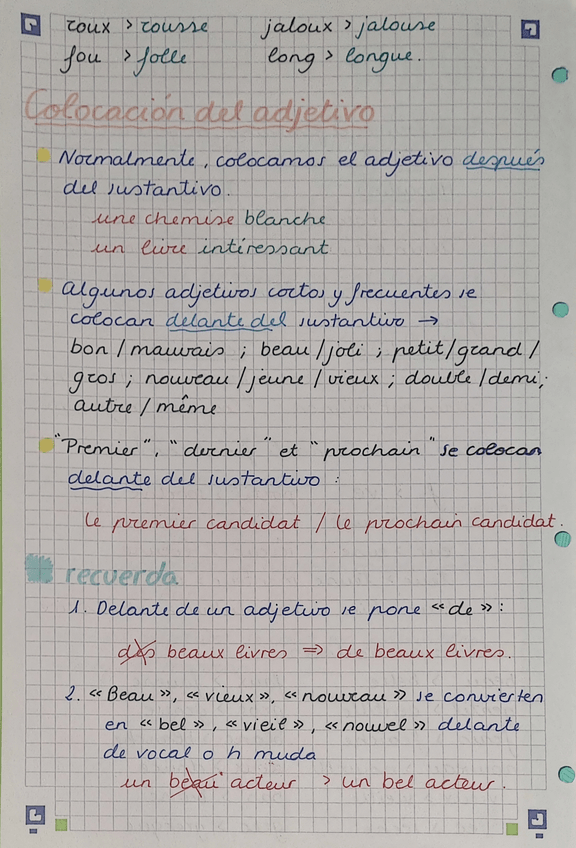 roux > rousse jaloux > jalouse
fou > folle long > longue.
Colocación del adjetivo
Normalmente, colocamos el adjetivo después
del sustantivo.
une chemise blanche
un livre intéressant
Algunos adjetivos cortos y frecuentes se
colocan delante del sustantivo →
bon / mauvais ; beau / joli ; petit / grand /
gros ; nouveau / jeune / vieux ; double / demi ;
autre / même
"Premier", "dernier" et "prochain" se colocan
delante del sustantivo :
le premier candidat / le prochain candidat.
recuerda
1. Delante de un adjetivo se pone « de » :
des beaux livres => de beaux livres.
2. « Beau », « vieux », « nouveau » se convierten
en « bel », « vieil », « nouvel » delante
de vocal o h muda
un beau acteur > un bel acteur.